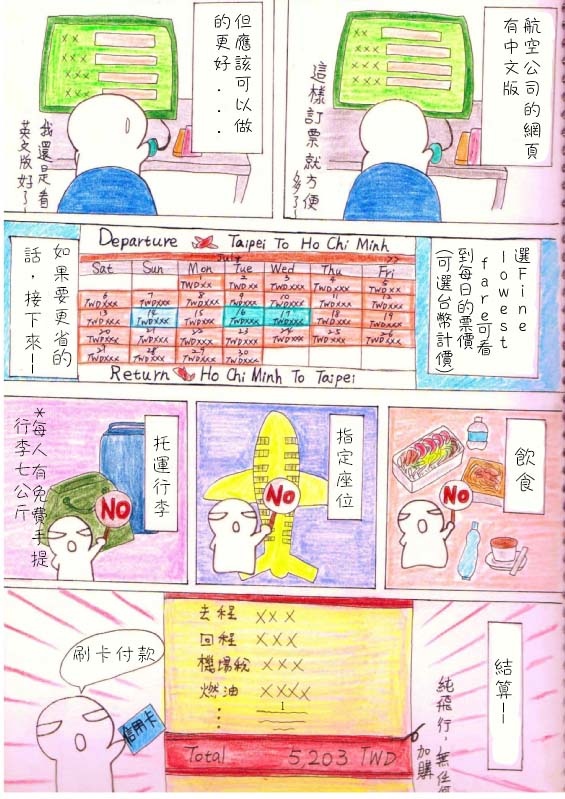 航空公司的網頁
有中文版
××
××
××
這樣訂票就方便
多了~
但應該可以做
的更好...
××
××
××
我還是看
英文版好了~
選Fine
lowest
fare可看
到每日的票價
(可選台幣計價)
Departure Taipei To Ho Chi Minh
July >>
Sat Sun Mon Tue Wed Thu Fri
2 3 4 5
TWDXX TWDXX TWDXXX TWDXX TWDXX
6 7 8 9 10 11 12
TWDXXX TWDXXX TWDXXX TWDXXX TWDXXX TWDXXX TWDXXX
13 14 15 16 17 18 19
TWDXXX TWDXXX TWDXXX TWDXXX TWDXXX TWDXXX TWDXXX
20 21 22 23 24 25 26
TWDXXX TWDXXX TWDXXX TWDXXX TWDXXX TWDXXX TWDXXX
27 28 29 30
TWDXXX TWDXXX TWDXXX TWDXXX
Return Ho Chi Minh To Taipei
如果要更省的
話，接下來——
飲食
NO
指定座位
NO
托運行李
NO
*每人有免費手提
行李七公斤
結算——
去程 ×× ×
回程 ×××
機場稅 ×××
燃油 ××××
Total 5,203 TWD
純飛行，無任何
加購
刷卡付款
信用卡